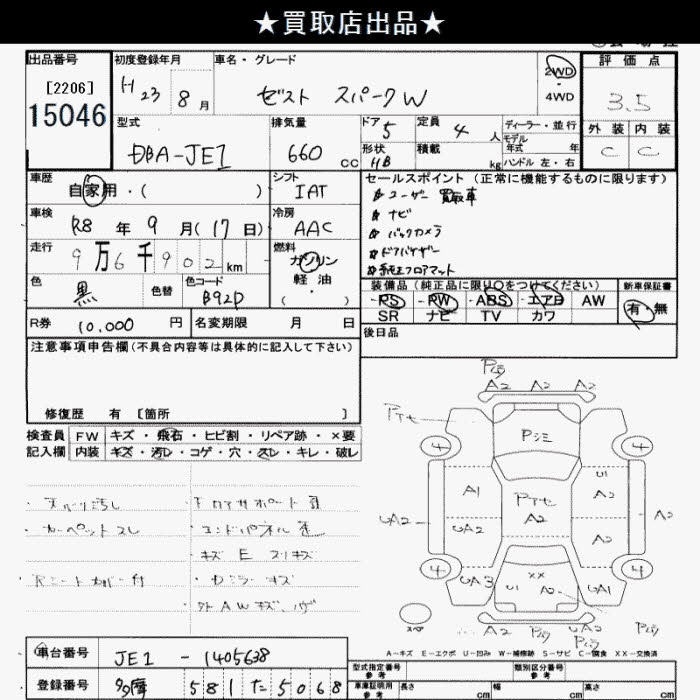 ★買取店出品★
出品番号
[2206]
15046
初度登録年月
H23 8月
車名・グレード
ゼスト スパークW
2WD
・
4WD
評価点
3.5
外装 内装
C C
型式
DBA-JE1
排気量
660 cc
ドア 5
定員 4 人
形状 HB
積載 kg
ディーラー・並行
モデル年式 年
ハンドル 左・右
車歴
自家用・( )
シフト
IAT
車検
R8 年 9 月(17日)
冷房
AAC
走行
9万6千902km
燃料
ガソリン
軽油
・( )
色
黒
色替
色コード
B92P
R券 10,000 円
名変期限 月 日
セールスポイント(正常に機能するものに限ります)
ユーザー買取車
ナビ
バックカメラ
ドアバイザー
純正フロアマット
装備品(純正品に限り○をつけてください)
PS PW ABS エアB AW
SR ナビ TV カワ
新車保証書
有・無
後日品
注意事項申告欄(不具合内容等は具体的に記入して下さい)
修復歴 有 [箇所 ]
検査員
記入欄
FW キズ・飛石・ヒビ割・リペア跡・×要
内装 キズ・汚レ・コゲ・穴・スレ・キレ・破レ
カーペットスレ
キズ E スリキズ
外AWキズ、
A2 A2 A2
Pシミ
4 4
A1
U1
A2
UA2
UA2
A2
A2
A2
4 4
UA3
××
U1
A2
UA1
A2
UA2
A-キズ E-エクボ U-凹み W-補修跡 S-サビ C-腐食 XX-交換済
車台番号
JE1 - 1405638
登録番号
多摩 581 た 5068
型式指定番号
参考
類別区分番号
参考
車庫証明用
参考
長さ cm
幅 cm
高さ cm